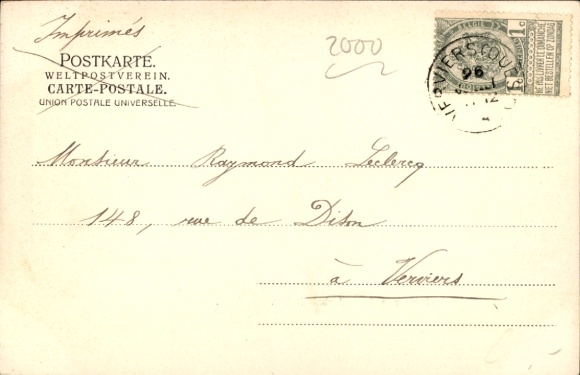 Imprimés
2000
POSTKARTE.
WELTPOSTVEREIN.
CARTE-POSTALE.
UNION POSTALE UNIVERSELLE.
1c
BELGIE
NE PAS LIVRER LE DIMANCHE
NIET BESTELLEN OP ZONDAG
VERVIERS (OUEST)
96
12
Monsieur Raymond Leclercq
148, rue de Dison
à Verviers